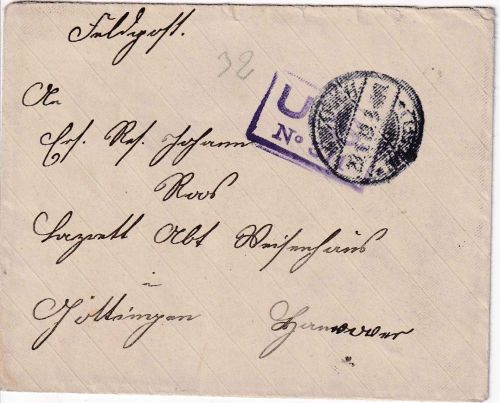 Feldpost.
32
An
U
No
Ers. Res. Johann
Roos
Lazarett Abt Weisenhaus
in
Göttingen Hannover